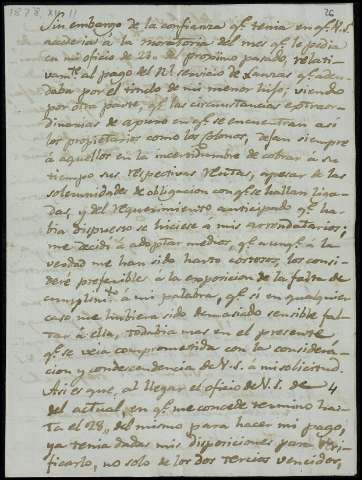 1878 XII 11
26
Sin embargo de la confianza qᵉ tenia en qᵉ V.S.
accederia à la moratoria del mes qᵉ le pedia
en mi oficio de 21 del proximo pasado, relati-
vamᵗᵉ al pago del servicio de Lanzas qᵉ adeu-
daba por el titulo de mi menor hijo; viendo
por otra parte, qᵉ las circunstancias extraor-
dinarias de apuro en qᵉ se encuentran asi
los propietarios como los colonos, dejan siempre
à aquellos en la incertidumbre de cobrar à su
tiempo sus respectivas rentas, apesar de las
solemnidades de obligacion con qᵉ se hallan liga-
das, y del requerimiento anticipado qᵉ ha-
bia dispuesto se hiciese à mis arrendatarios;
me decidi à adoptar medios, qᵉ aunqᵉ à la
verdad me han sido harto costosos, los consi-
deré preferibles à la exposicion de la falta de
cumplimᵗᵒ à mi palabra, qᵉ si en qualquier
caso me hubiera sido demasiado sensible fal-
tar à ella, todabia mas en el presente
qᵉ se veia comprometida con la considera-
cion y condescendencia de V.S. à mi solicitud.
Asi es que, al llegar el oficio de V.S. de 4
del actual, en qᵉ me concede termino has-
ta el 28 del mismo para hacer mi pago,
ya tenia dadas mis disposiciones para veri-
ficarlo, no solo de los dos tercios vencidos,